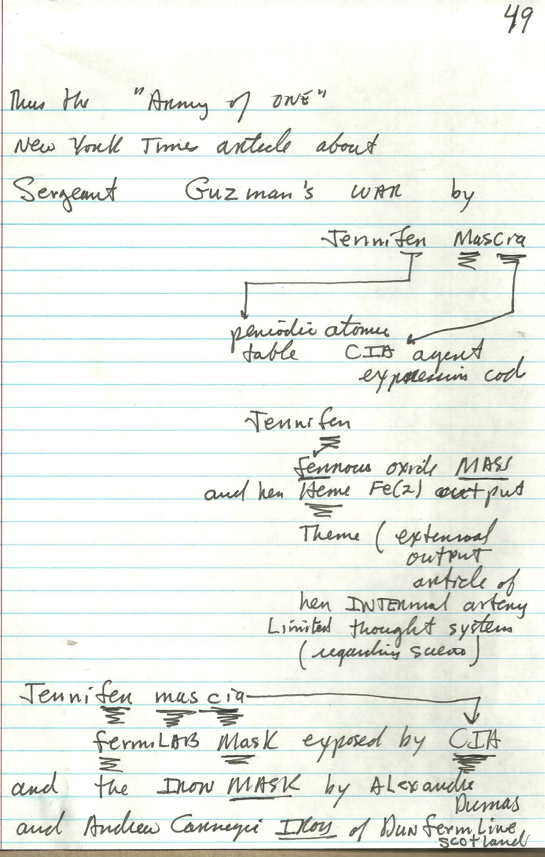 49
Thus the "Army of ONE"
New York Times article about
Sergeant Guzman's WAR by
Jennifer Mascia
periodic atomic
table CIA agent
expression code
Jennifer
ferrous oxide MASS
and her Heme Fe(2) output
Theme (external
output
article of
her INTERnal artery
Limited thought system
(regarding
Jennifer mascia
fermiLAB Mask exposed by CIA
and the IRON MASK by ALexandre
Dumas
and Andrew Carnegie IRON of DunfermLine
Scotland